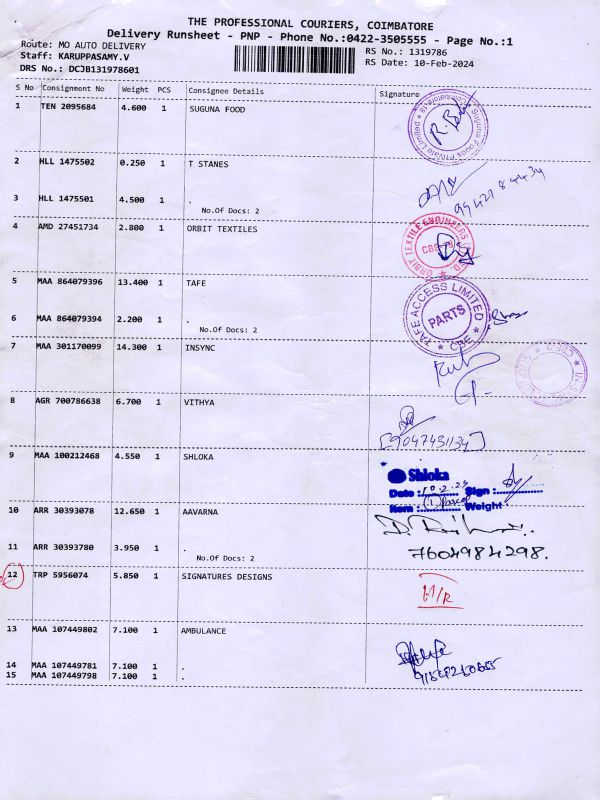 THE PROFESSIONAL COURIERS, COIMBATORE
Delivery Runsheet - PNP - Phone No.:0422-3505555 - Page No.:1
Route: MO AUTO DELIVERY
RS No.: 1319786
Staff: KARUPPASAMY.V
RS Date: 10-Feb-2024
DRS No.: DCJB131978601
S No Consignment No Weight PCS Consignee Details Signature
1 TEN 2095684 4.600 1 SUGUNA FOOD
2 HLL 1475502 0.250 1 T STANES
3 HLL 1475501 4.500 1 .
No.Of Docs: 2
4 AMD 27451734 2.800 1 ORBIT TEXTILES
ORBIT TEXTILE ENGINEERS
5 MAA 864079396 13.400 1 TAFE
TAFE ACCESS LIMITED
PARTS
CBE
6 MAA 864079394 2.200 1 .
No.Of Docs: 2
7 MAA 301170099 14.300 1 INSYNC
8 AGR 700786638 6.700 1 VITHYA
[9047431134]
9 MAA 100212468 4.550 1 SHLOKA
Shloka
Date : 10.2.24 Sign :
Item : Weight
10 ARR 30393078 12.650 1 AAVARNA
11 ARR 30393780 3.950 1 .
7604984298.
No.Of Docs: 2
12 TRP 5956074 5.850 1 SIGNATURES DESIGNS
13 MAA 107449802 7.100 1 AMBULANCE
14 MAA 107449781 7.100 1 .
15 MAA 107449798 7.100 1 .